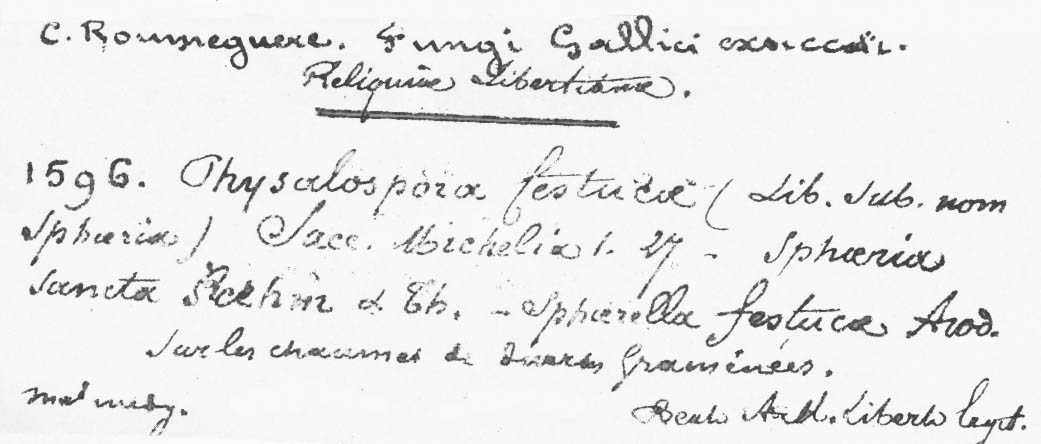 C. Roumeguere. Fungi Gallici exsiccati.
Reliquiæ Libertianæ.
1596. Physalospora festucæ (Lib. sub. nom
Sphæria) Sacc. Michelia 1. 27 - Sphæria
sancta Rehm & Th. - Sphærella festucæ Awd.
Sur les chaumes de diverses Graminées.
Malmedy.
Beat. Ard. Libert legit.